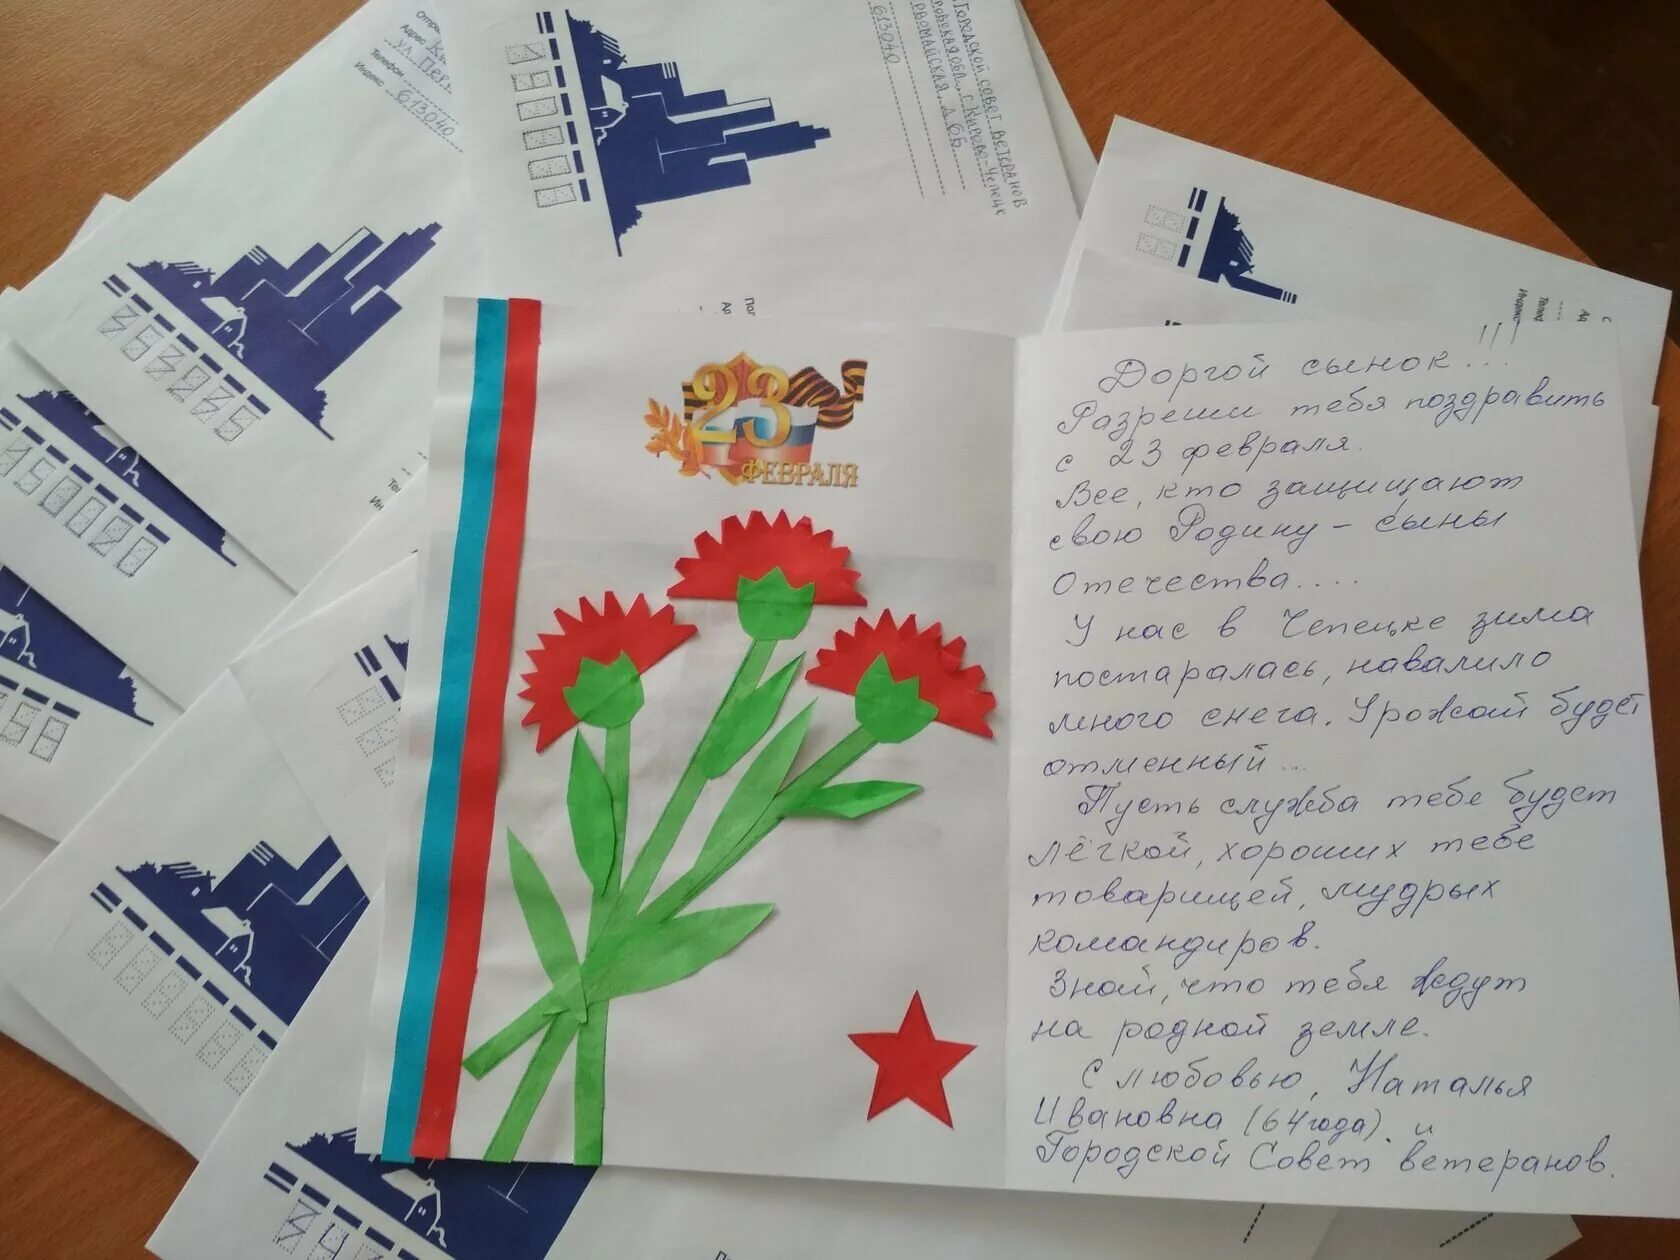 Отпр
Адрес Ки
ул. Перв
Телефон
Индекс 613040
Городской совет ветеранов
ровская обл., г. Кирово-Чепецк
рвомайская, д. 6Б
613040
353235
150020
Индекс
23
ФЕВРАЛЯ
!!!
Доргой сынок...
Разреши тебя поздравить
с 23 февраля.
Все, кто защищают
свою Родину – сыны
Отечества....
У нас в Чепецке зима
постаралась, навалило
много снега. Урожай будет
отменный...
Пусть служба тебе будет
лёгкой, хороших тебе
товарищей, мудрых
командиров.
Знай, что тебя ждут
на родной земле.
С любовью, Наталья
Ивановна (64 года). и
Городской Совет ветеранов.